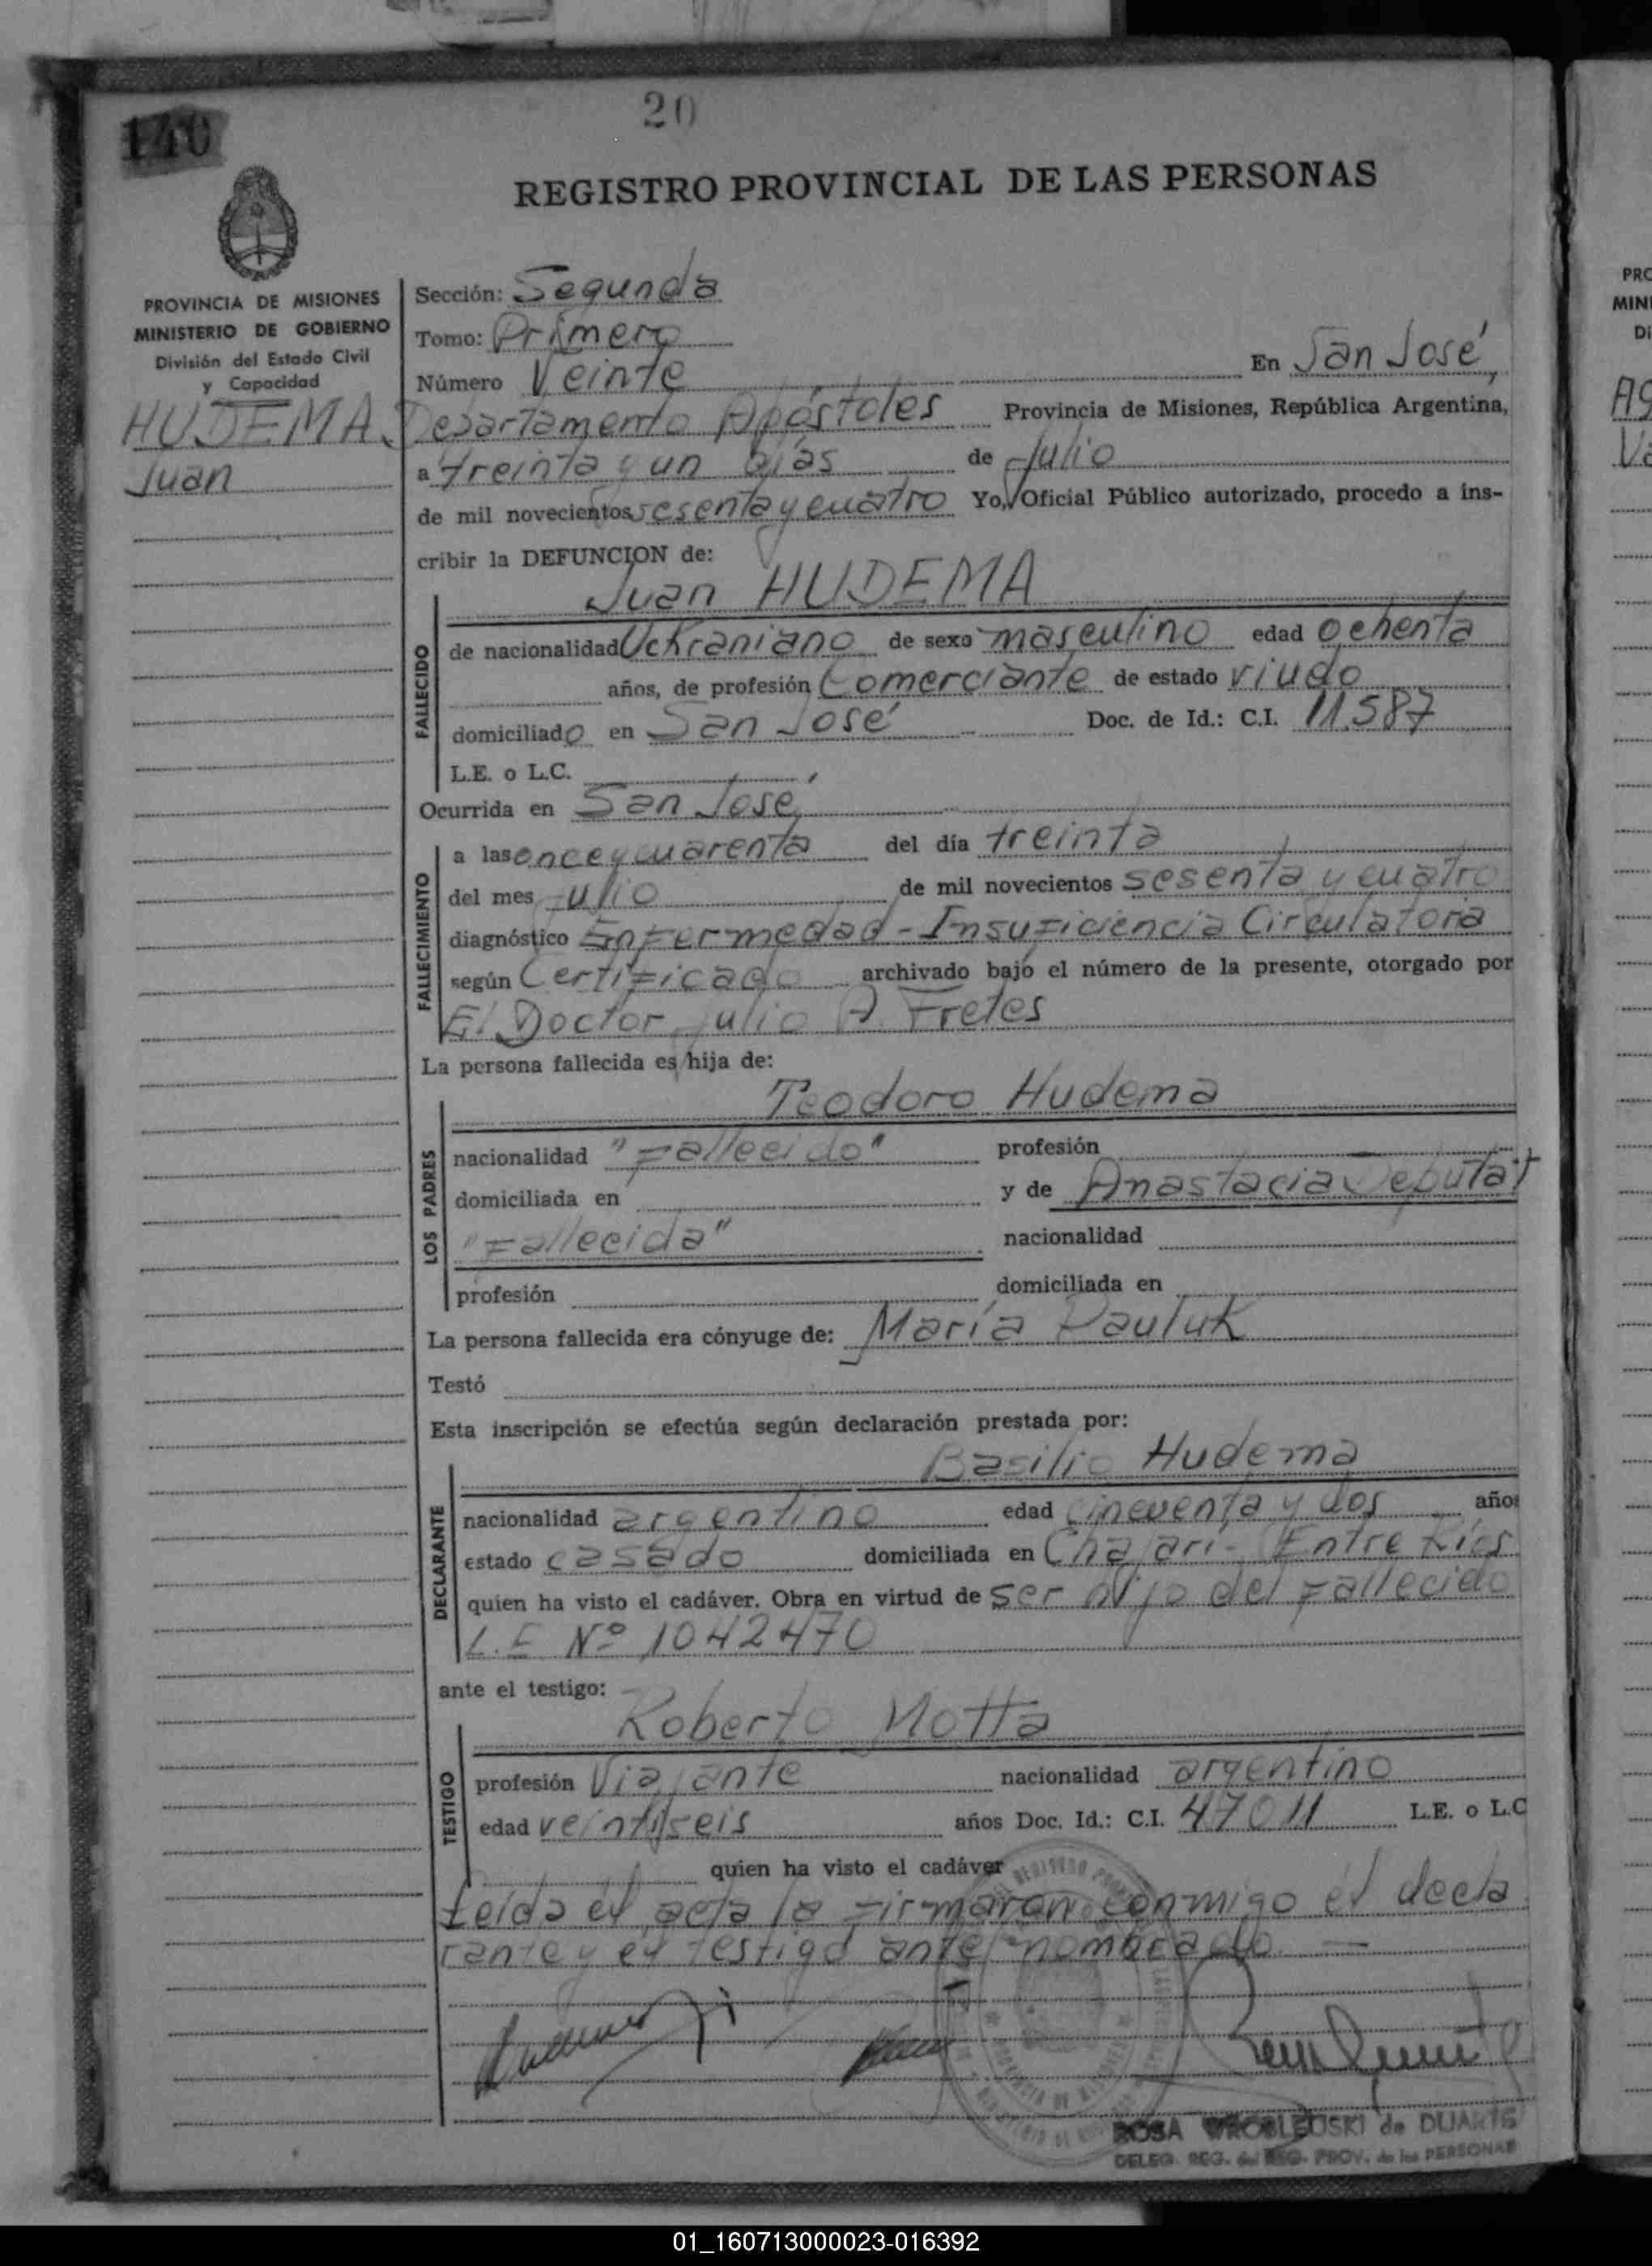 20
140
REGISTRO PROVINCIAL DE LAS PERSONAS
PROVINCIA DE MISIONES
MINISTERIO DE GOBIERNO
División del Estado Civil
y Capacidad
HUDEMA,
Juan
Sección: Segunda
Tomo: Primero
Número Veinte En San José,
Departamento Apóstoles Provincia de Misiones, República Argentina,
a treinta y un días de Julio
de mil novecientos sesenta y cuatro Yo, Oficial Público autorizado, procedo a ins-
cribir la DEFUNCION de:
Juan HUDEMA
FALLECIDO
de nacionalidad Uckraniano de sexo masculino edad ochenta
años, de profesión Comerciante de estado viudo
domiciliado en San José Doc. de Id.: C.I. 11.587
L.E. o L.C.
Ocurrida en San José
FALLECIMIENTO
a las once y cuarenta del día treinta
del mes Julio de mil novecientos sesenta y cuatro
diagnóstico Enfermedad - Insuficiencia Circulatoria
según Certificado archivado bajo el número de la presente, otorgado por
El Doctor Julio A. Fretes
La persona fallecida es hija de:
Teodoro Hudema
LOS PADRES
nacionalidad "Fallecido" profesión
domiciliada en y de Anastacia Deputat
"Fallecida" nacionalidad
profesión domiciliada en
La persona fallecida era cónyuge de: María Pauluk
Testó
Esta inscripción se efectúa según declaración prestada por:
Basilio Hudema
DECLARANTE
nacionalidad argentino edad cincuenta y dos años
estado casado domiciliada en Chajarí - Entre Ríos
quien ha visto el cadáver. Obra en virtud de ser hijo del fallecido
L.E. Nº 1042470
ante el testigo:
Roberto Motta
TESTIGO
profesión Viajante nacionalidad argentino
edad veintiseis años Doc. Id.: C.I. 47011 L.E. o L.C
quien ha visto el cadáver
Leída el acta la firmaron conmigo el decla
rante y el testigo ante nombrado. —
ROSA WROBLEUSKI de DUARTE
DELEG. REG. del REG. PROV. de las PERSONAS
PRO
MINI
Di
01_160713000023-016392